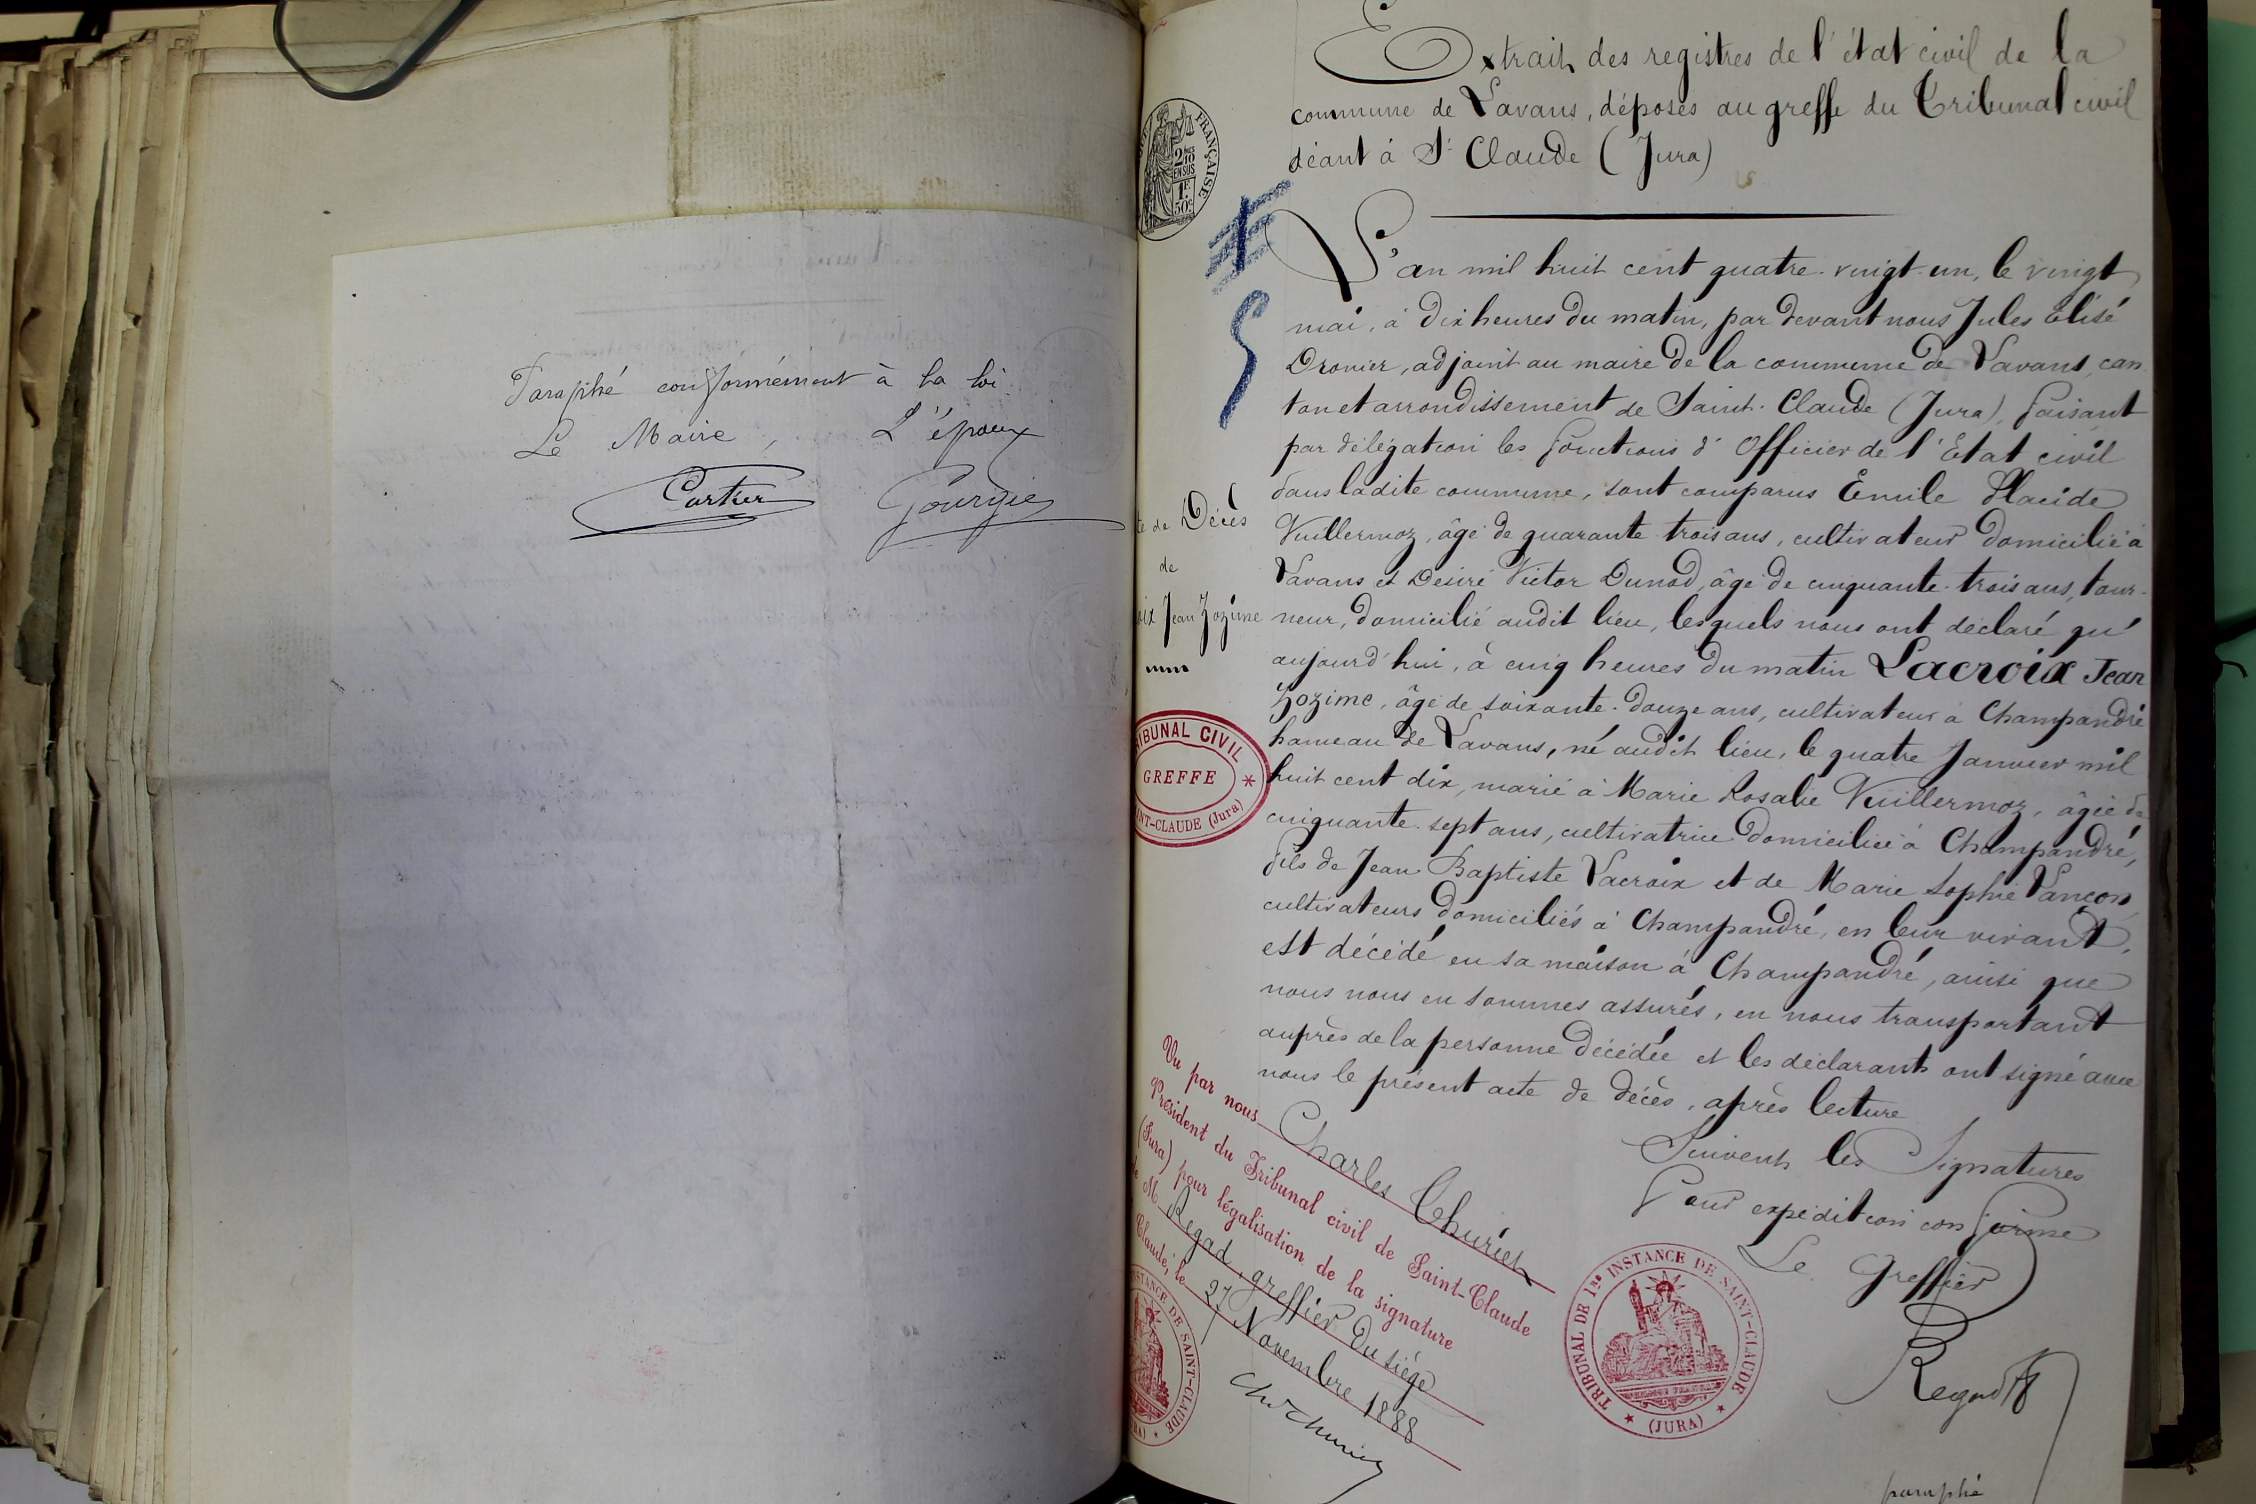 Paraphé conformément à la loi
Le Maire, L'époux
Cartier Gourgie
Extrait des registres de l'état civil de la
commune de Lavans, déposés au greffe du Tribunal civil
séant à St Claude (Jura)
FRANÇAISE
EN SUS
1F
50c
L'an mil huit cent quatre-vingt-un, le vingt
mai, à dix heures du matin, par devant nous Jules Elisé
Dronier, adjoint au maire de la commune de Lavans, can
ton et arrondissement de Saint-Claude (Jura), faisant
par délégation les fonctions d'Officier de l'Etat civil
dans ladite commune, sont comparus Emile Placide
Vuillermoz, âgé de quarante-trois ans, cultivateur domicilié à
Lavans et Désiré Victor Dunod, âgé de cinquante-trois ans, tour-
neur, domicilié audit lieu, lesquels nous ont déclaré qu'
aujourd'hui, à cinq heures du matin Lacroix Jean
Zozime, âgé de soixante-douze ans, cultivateur à Champandré
hameau de Lavans, né audit lieu, le quatre Janvier mil
huit cent dix, marié à Marie Rosalie Vuillermoz, âgée de
cinquante-sept ans, cultivatrice domiciliée à Champandré,
fils de Jean Baptiste Lacroix et de Marie Sophie Lançon
cultivateurs domiciliés à Champandré, en leur vivant,
est décédé en sa maison à Champandré, ainsi que
nous nous en sommes assurés, en nous transportant
auprès de la personne décédée et les déclarants ont signé avec
nous le présent acte de décès, après lecture
Suivent les Signatures
Pour expédition conforme
Le Greffier
Regad
paraphé
te de Décès
de
oix Jean Zozime
TRIBUNAL CIVIL
GREFFE
SAINT-CLAUDE (Jura)
Vu par nous Charles Thuriet
Président du Tribunal civil de Saint-Claude
(Jura) pour légalisation de la signature
de M Regad, greffier du siège
Claude, le 27 Novembre 1888
Ch Thuriet
TRIBUNAL DE 1RE INSTANCE DE SAINT-CLAUDE
(JURA)
INSTANCE DE SAINT-CLAUDE